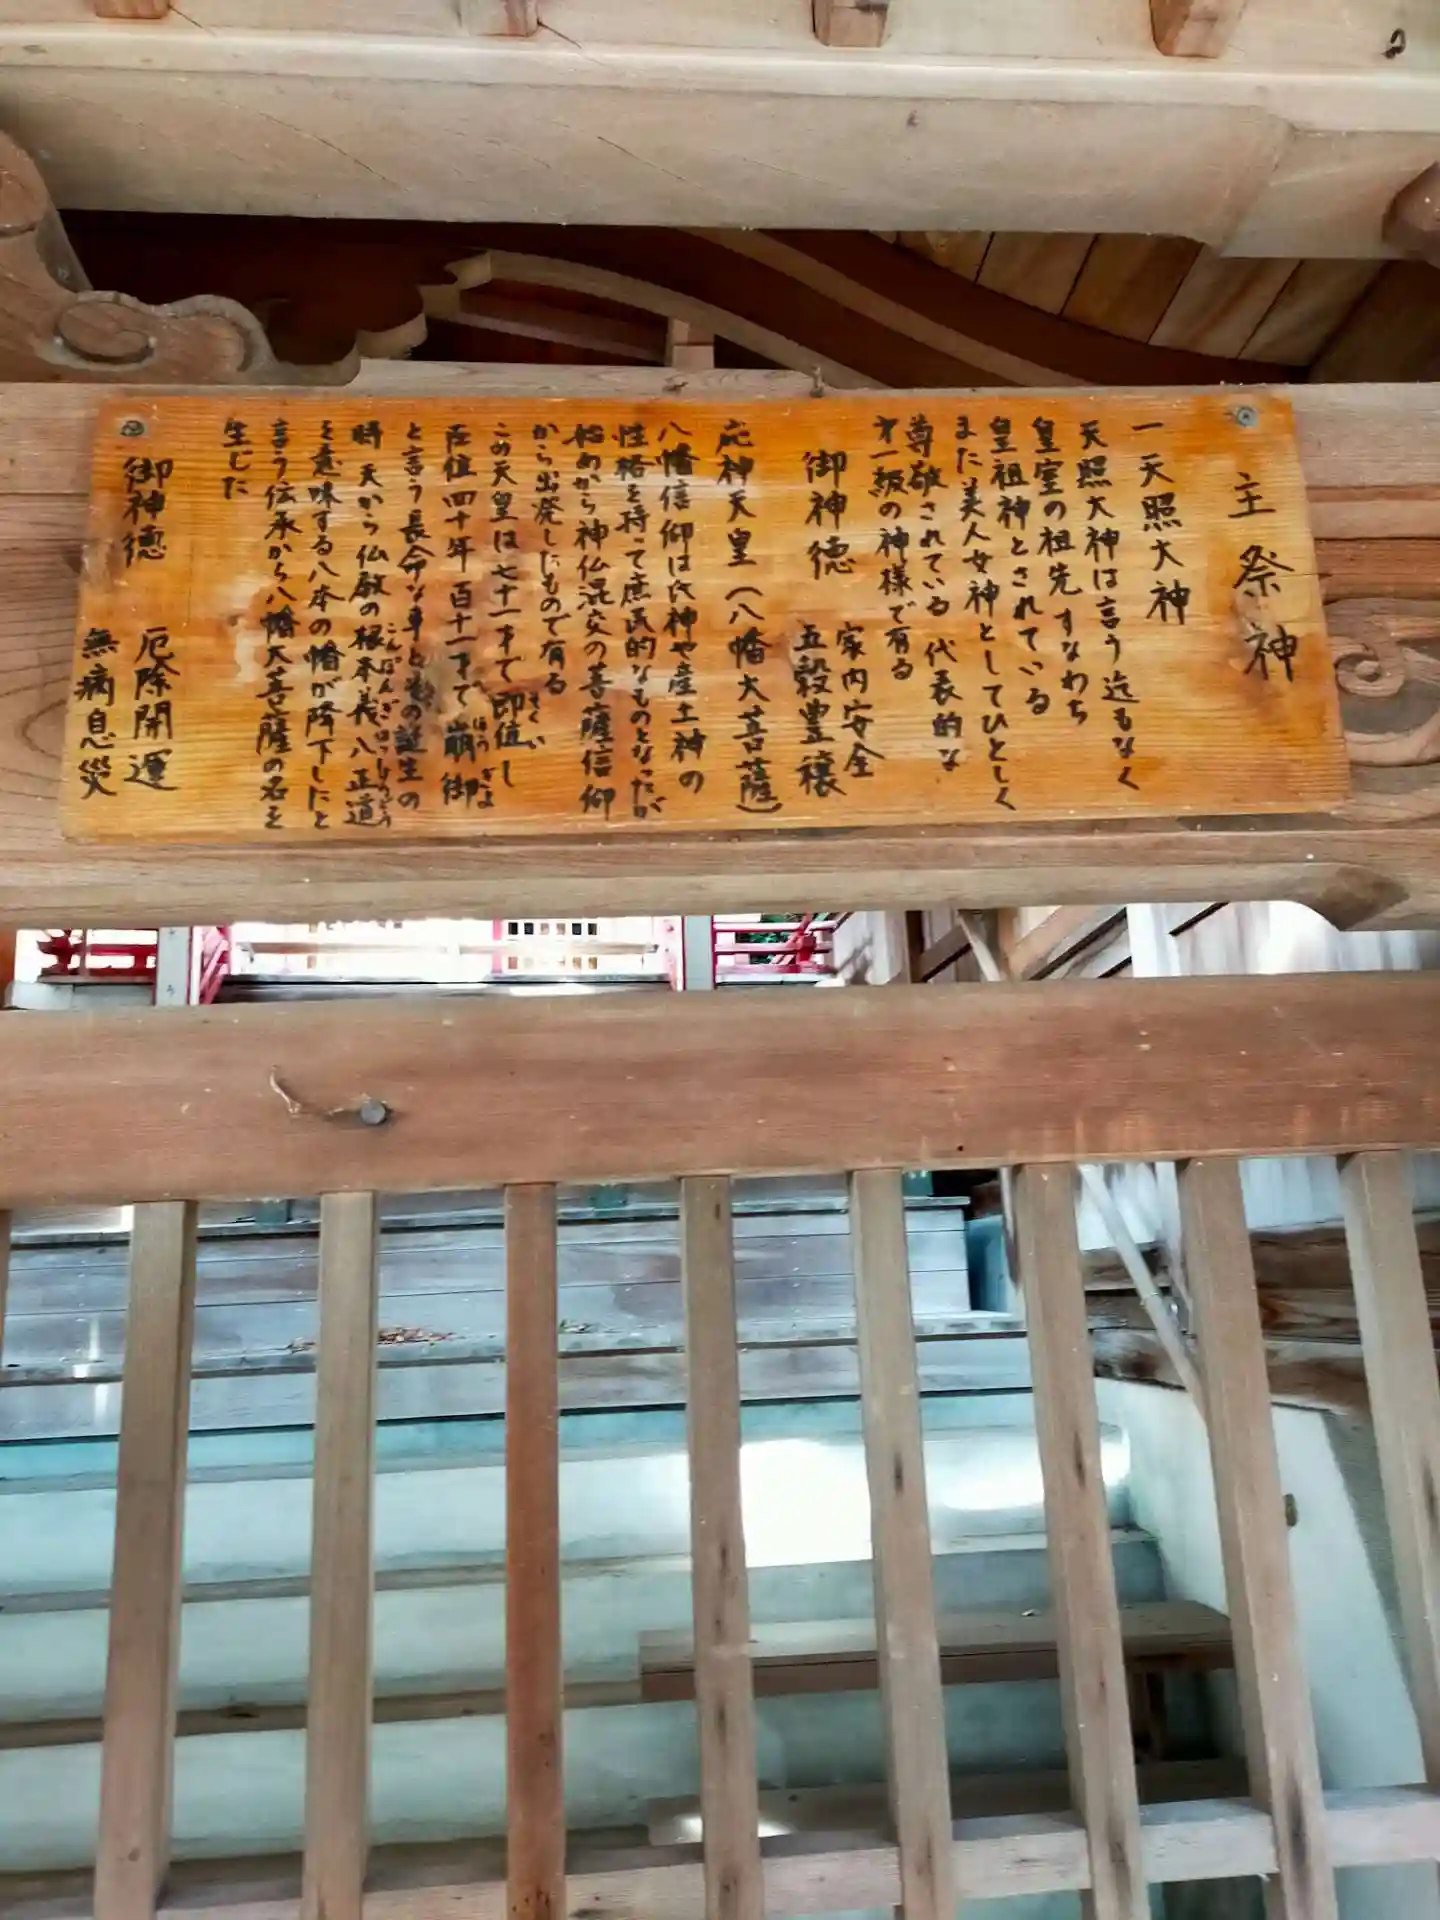 主祭神
一天照大神
天照大神は言う迄もなく
皇室の祖先すなわち
皇祖神とされている
また美人女神としてひとしく
尊敬されている代表的な
才一級の神様で有る
御神徳 家内安全
五穀豊穣
応神天皇(八幡大菩薩)
八幡信仰は氏神や産土神の
性格を持って庶民的なものとなったが
始めから神仏混交の菩薩信仰
から出発したもので有る
この天皇は七十一才で即位し
さくい
在位四十年百十一才で崩御
ほうぎよ
と言う長命な
の誕生の
時天から仏教の根本義八正道
こんぽんぎはっしょうどう
を意味する八本の幡が降下したと
言う伝承から八幡大菩薩の名を
生じた
御神徳 厄除開運
無病息災